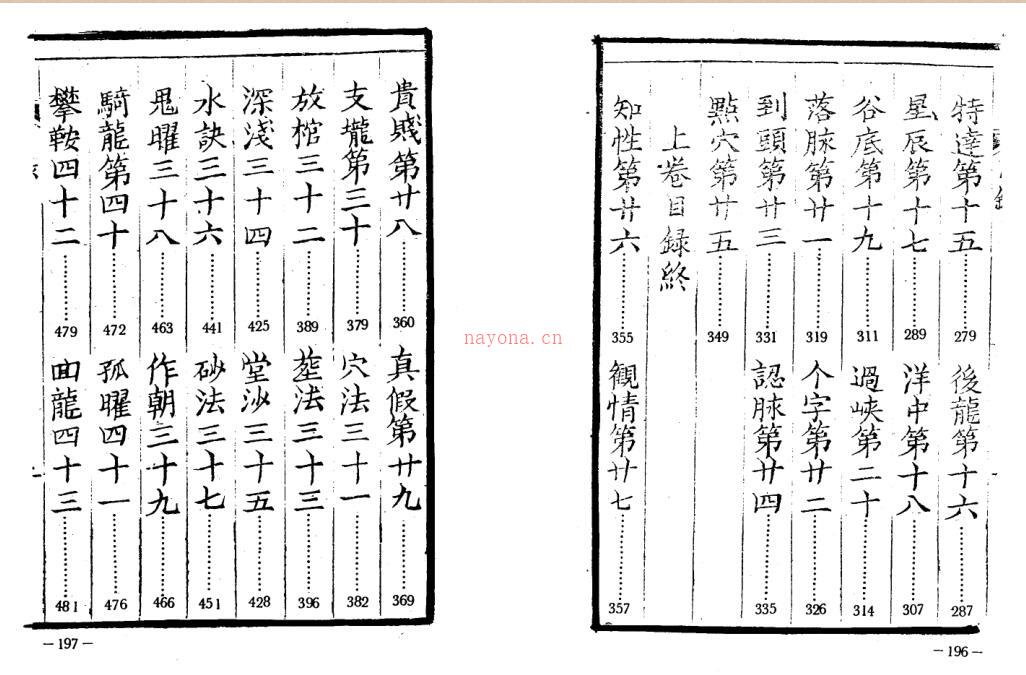 特達第十五 279
後龍第十六 287
星辰第十七 289
洋中第十八 307
谷底第十九 311
過峽第二十 314
落脉第廿一 319
个字第廿二 326
到頭第廿三 331
認脉第廿四 335
點穴第廿五 349
上卷目録終
知性第廿六 355
觀情第廿七 357
—196—
貴賎第廿八 360
真假第廿九 369
支壠第三十 379
穴法三十一 382
放棺三十二 389
葬法三十三 396
深淺三十四 425
堂沙三十五 428
水訣三十六 441
砂法三十七 451
鬼曜三十八 463
作朝三十九 466
騎龍第四十 472
孤曜四十一 476
攀鞍四十二 479
回龍四十三 481
—197—
nayona.cn